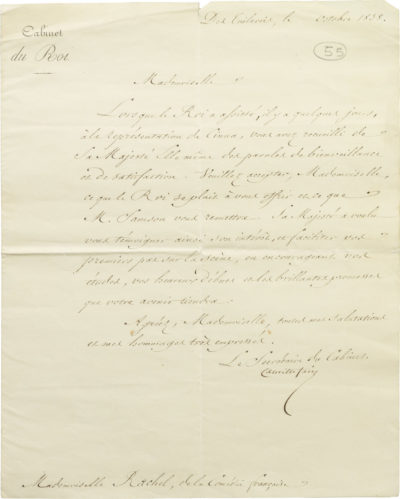 Cabinet
du Roi.
Des Tuileries, le octobre 1838.
55
Mademoiselle
Lorsque le Roi a assisté, il y a quelques jours,
à la représentation de Cinna, vous avez recueilli de
Sa Majesté Elle même des paroles de bienveillance
et de satisfaction. Veuillez accepter, Mademoiselle,
ce que le Roi se plait à vous offrir et ce que
M. Samson vous remettra. Sa Majesté a voulu
vous témoigner ainsi son intérêt, et faciliter vos
premiers pas sur la scène, en encourageant vos
études, vos heureux débuts et les brillantes promesses
que votre avenir tiendra.
Agréez, Mademoiselle, toutes mes salutations
et mes hommages très empressés.
Le Secrétaire du Cabinet
Camille fain
Mademoiselle Rachel, de la Comédie française.